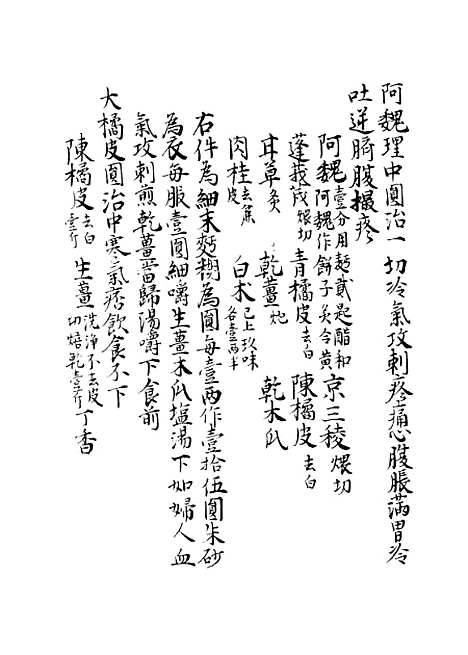 阿魏理中圓治一切冷氣攻刺疼痛心腹脹滿胃冷
吐逆臍腹撮疼
阿魏壹分用麪貳匙醋和阿魏作餅子炙令黃 京三稜煨切
蓬莪茂煨切 青橘皮去白 陳橘皮去白
甘草炙 乾薑炮 乾木瓜
肉桂去麄皮 白朮已上玖味各壹兩半
右件為細末麪糊為圓每壹兩作壹拾伍圓朱砂
為衣每服壹圓細嚼生薑木瓜塩湯下如婦人血
氣攻刺煎乾薑當歸湯嚼下食前
大橘皮圓治中寒氣痞飲食不下
陳橘皮去白壹斤 生薑洗淨不去皮切焙乾壹斤 丁香